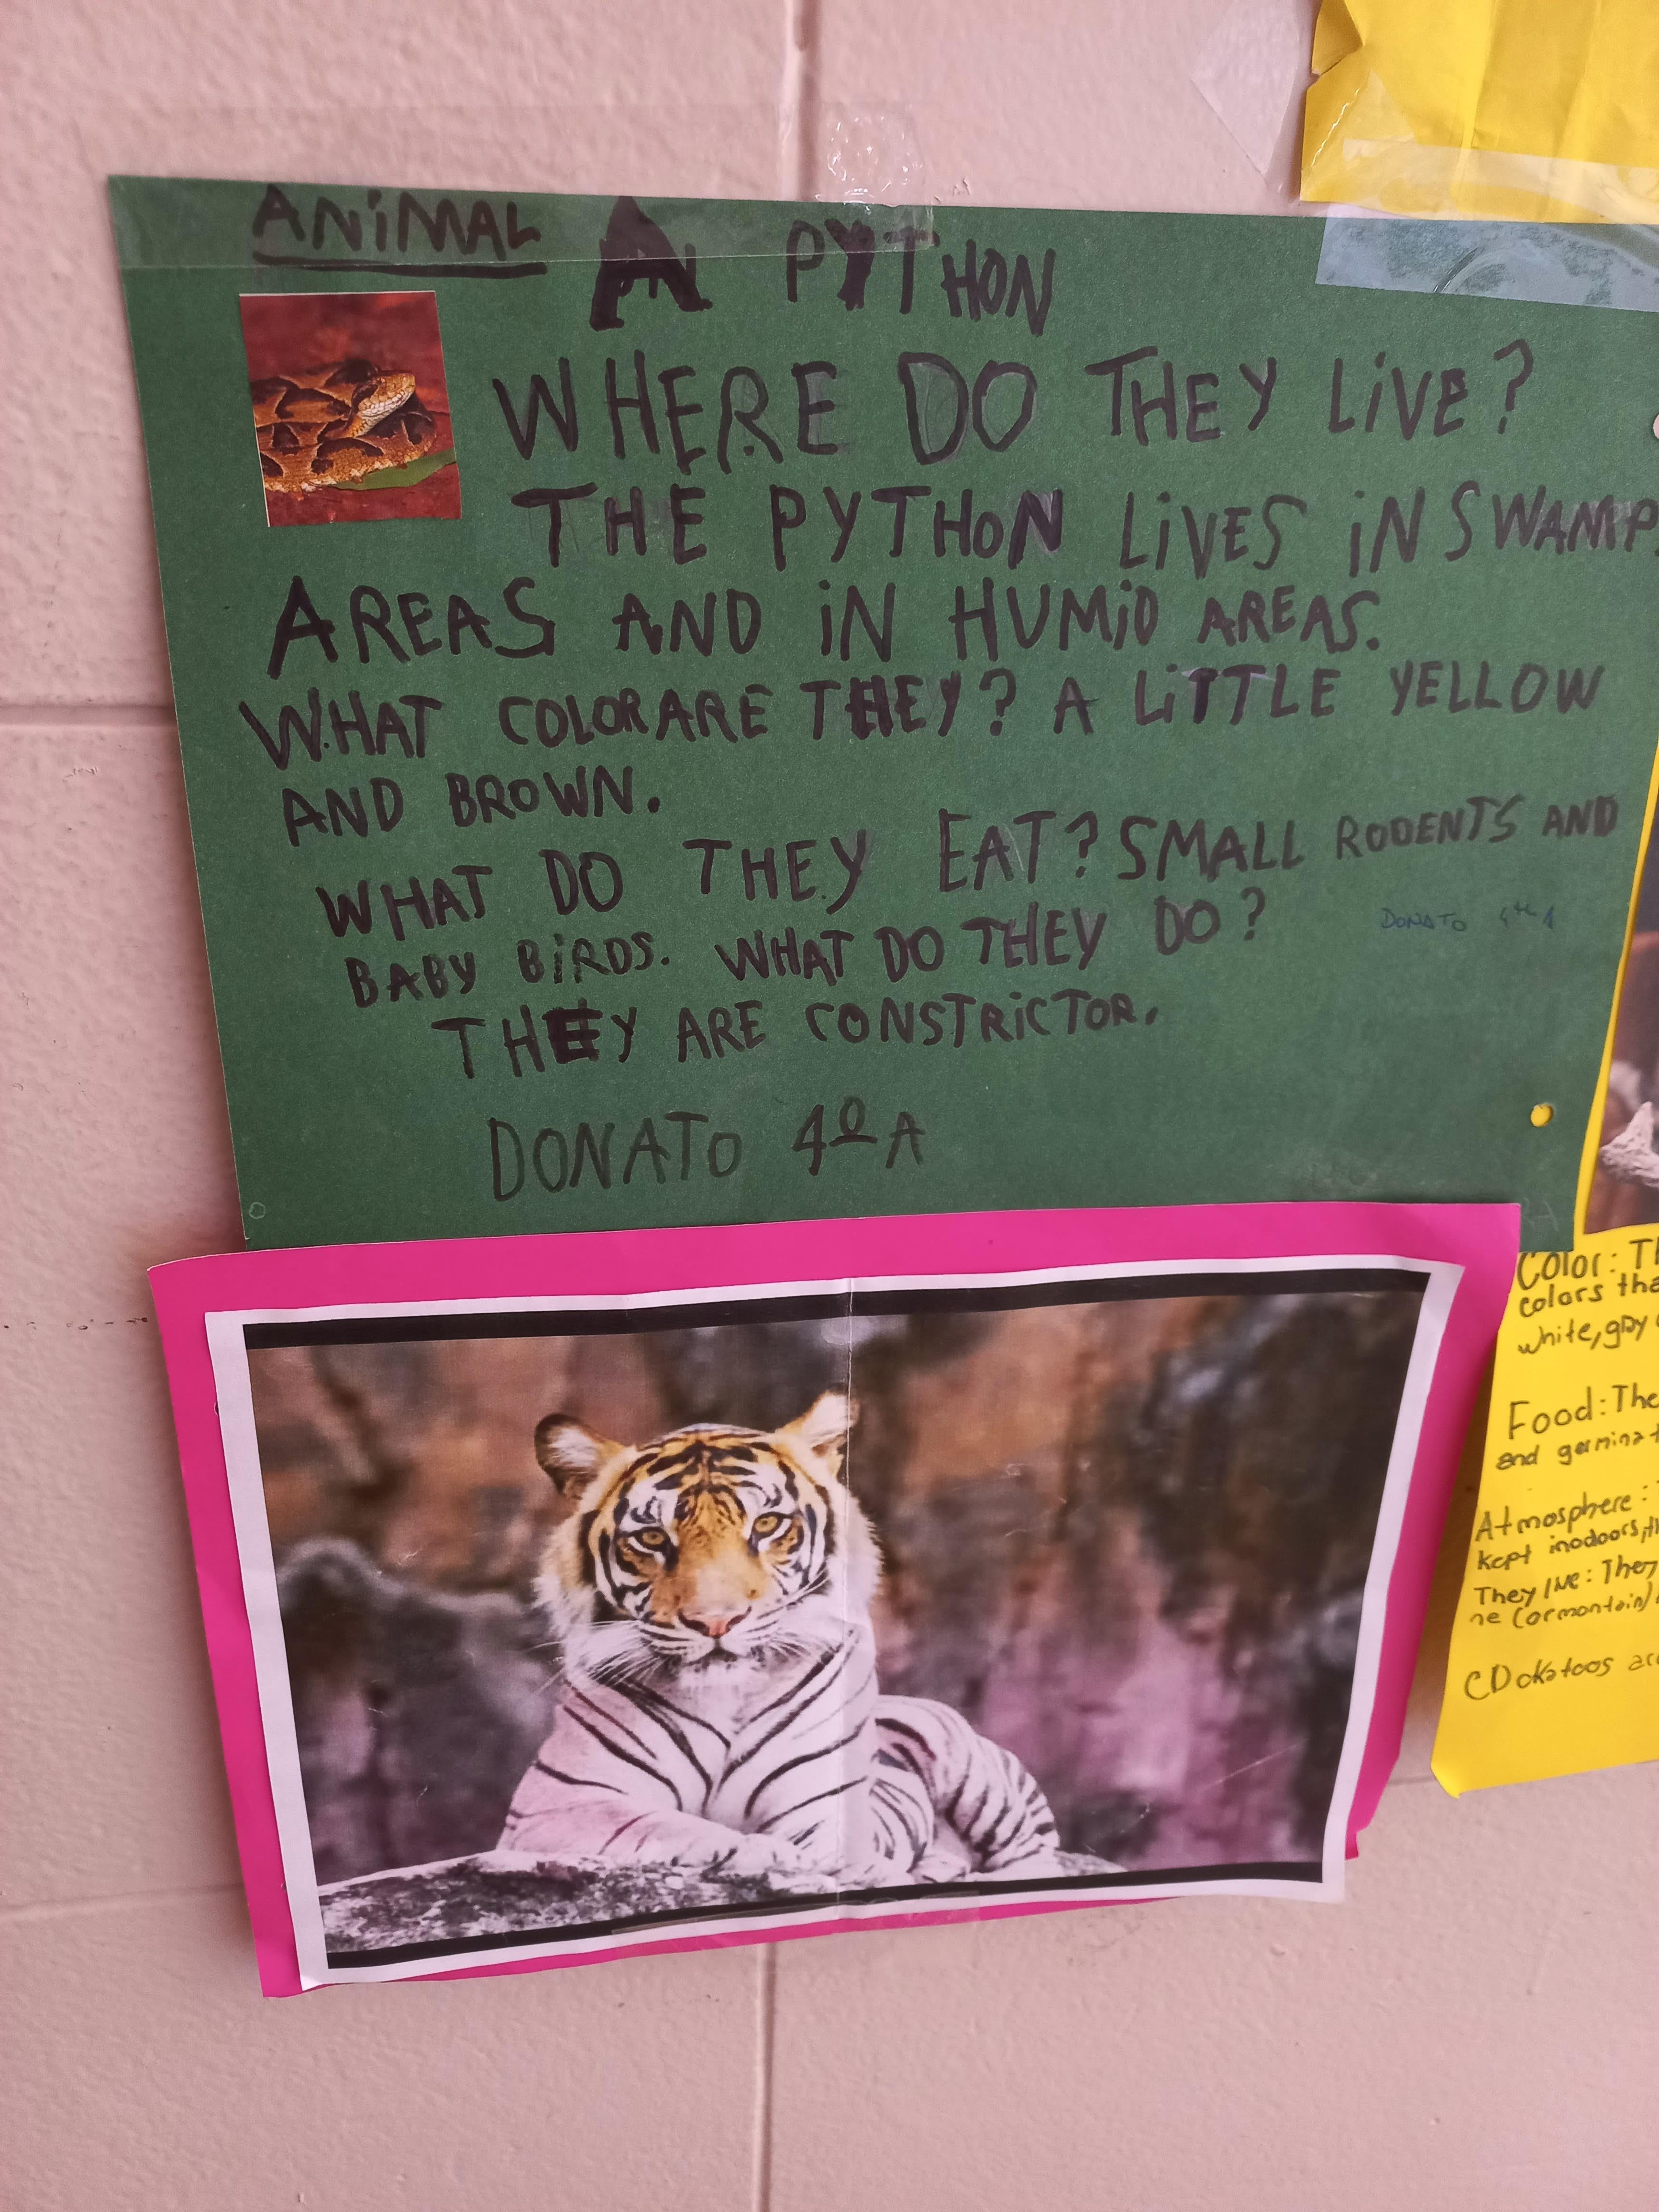 ANiMAL A PYTHON
WHERE DO THEY LiVE?
THE PYTHON LiVES iN SWAMP
AREAS AND iN HUMiD AREAS.
WHAT COLOR ARE THEY? A LiTTLE YELLOW
AND BROWN.
WHAT DO THEY EAT? SMALL RODENTS AND
BABY BiRDS. WHAT DO THEY DO?
THEY ARE CONSTRiCTOR.
DONATO 4th A
DONATO 4º A
Color: Th
colors tha
white, gay
Food: The
and germinat
Atmosphere:
kept inodoors, th
They live: They
ne (or montain)
CDokatoos are